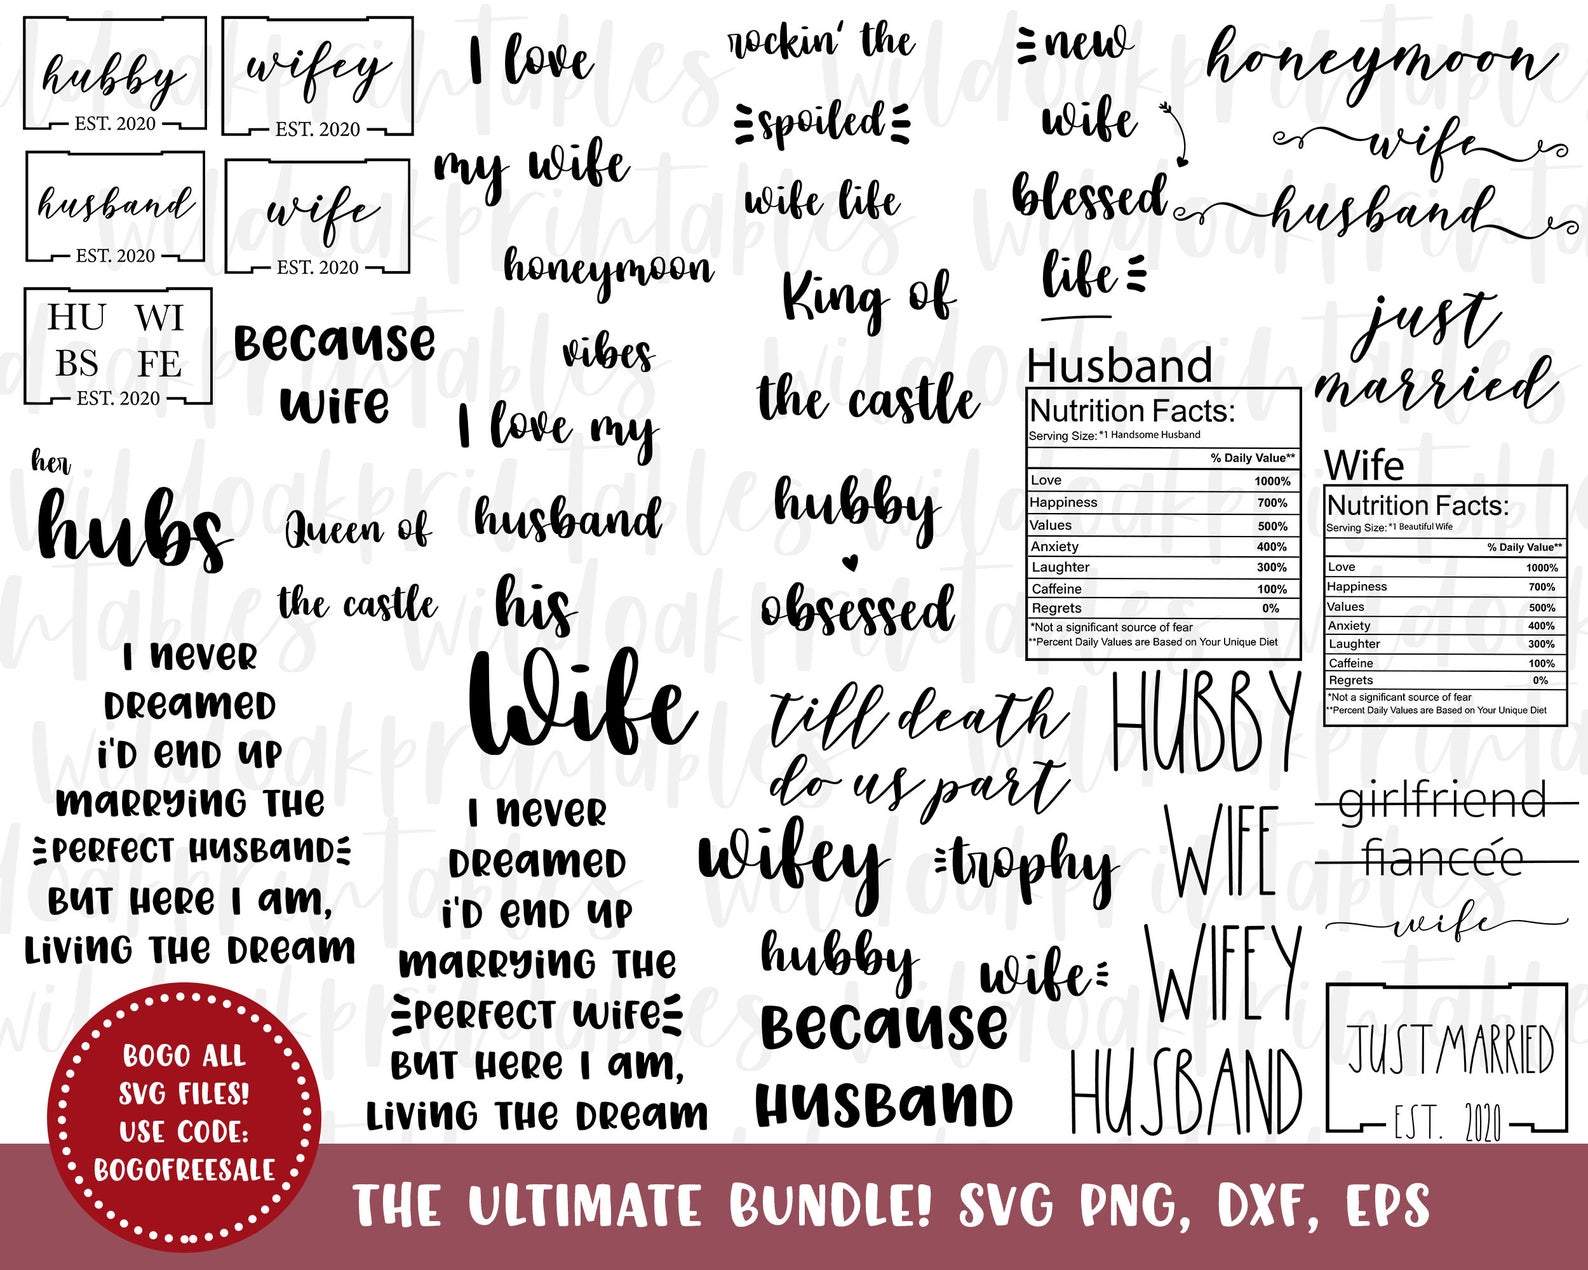 hubby
EST. 2020
wifey
EST. 2020
husband
EST. 2020
wife
EST. 2020
HU WI
BS FE
EST. 2020
Because
wife
her
hubs
Queen of
the castle
I never
dreamed
i'd end up
marrying the
perfect husband
but here I am,
living the dream
I love
my wife
honeymoon
vibes
I love my
husband
his
Wife
I never
dreamed
i'd end up
marrying the
perfect wife
but here I am,
living the dream
rockin' the
spoiled
wife life
King of
the castle
hubby
obsessed
till death
do us part
wifey
trophy
hubby
wife
Because
Husband
new
wife
blessed
life
honeymoon
wife
husband
just
married
Husband
Nutrition Facts:
Serving Size: *1 Handsome Husband
% Daily Value**
Love 1000%
Happiness 700%
Values 500%
Anxiety 400%
Laughter 300%
Caffeine 100%
Regrets 0%
*Not a significant source of fear
**Percent Daily Values are Based on Your Unique Diet
Wife
Nutrition Facts:
Serving Size: *1 Beautiful Wife
% Daily Value**
Love 1000%
Happiness 700%
Values 500%
Anxiety 400%
Laughter 300%
Caffeine 100%
Regrets 0%
*Not a significant source of fear
**Percent Daily Values are Based on Your Unique Diet
HUBBY
WIFE
WIFEY
HUSBAND
girlfriend
fiancée
wife
JUST MARRIED
EST. 2020
BOGO ALL
SVG FILES!
USE CODE:
BOGOFREESALE
THE ULTIMATE BUNDLE! SVG PNG, DXF, EPS
wildoakprintables